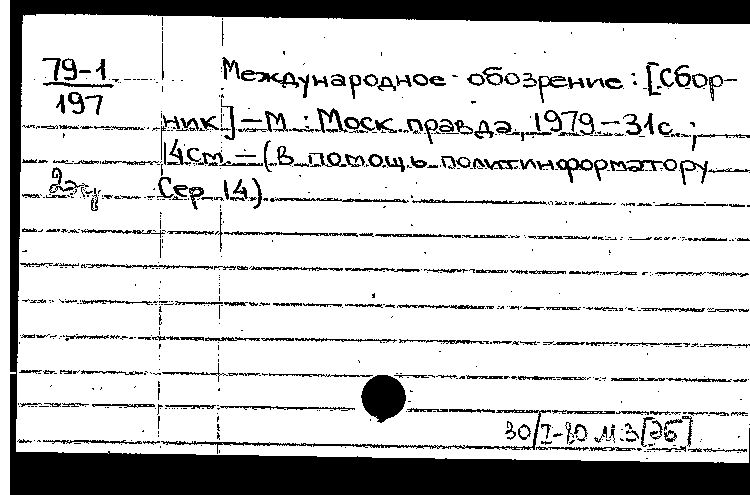 79-1
197
Международное обозрение: [Сбор-
ник] - М.: Моск. правда, 1979 - 31с.;
14см. - (В помощь политинформатору
Сер. 14)
2эк
30/I-80 М.З [ЭБ]